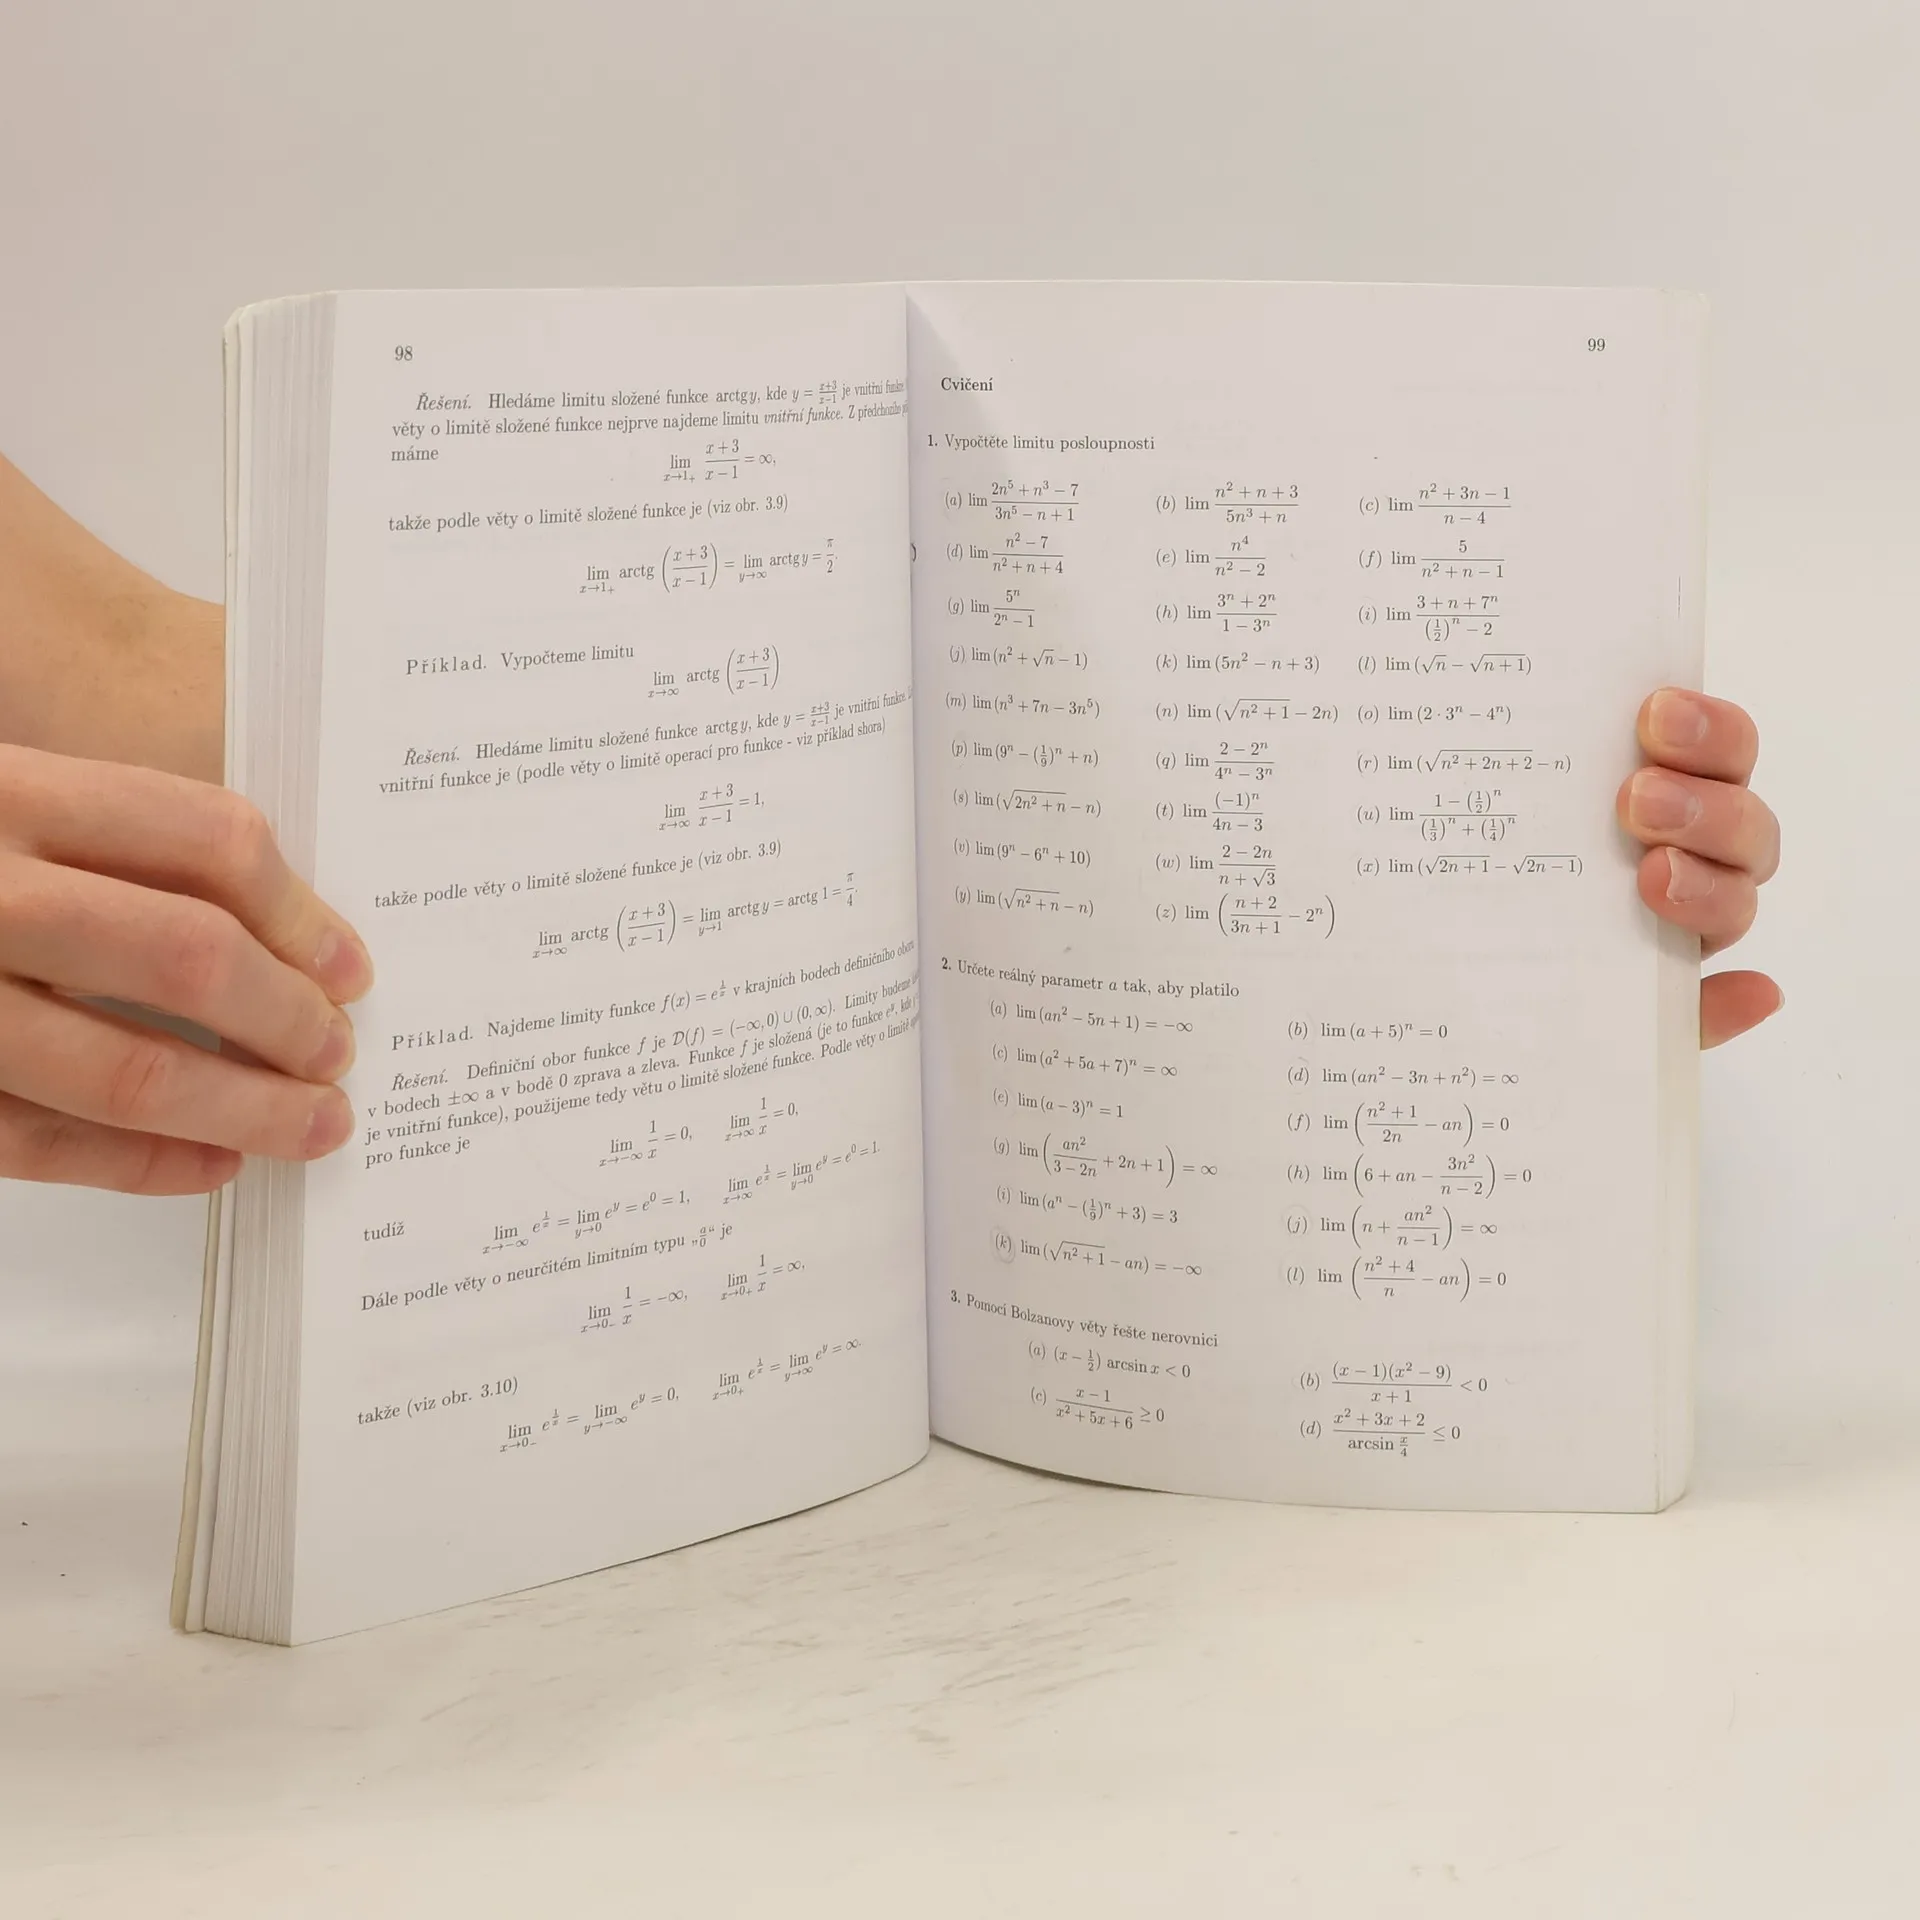 98
Řešení. Hledáme limitu složené funkce arctg y, kde y = \frac{x+3}{x-1} je vnitřní funkce
věty o limitě složené funkce nejprve najdeme limitu vnitřní funkce. Z předchozího
máme
\lim_{x→1+} \frac{x+3}{x-1} = ∞,
takže podle věty o limitě složené funkce je (viz obr. 3.9)
\lim_{x→1+} arctg (\frac{x+3}{x-1}) = \lim_{y→∞} arctg y = \frac{π}{2}.
Příklad. Vypočteme limitu
\lim_{x→∞} arctg (\frac{x+3}{x-1})
Řešení. Hledáme limitu složené funkce arctg y, kde y = \frac{x+3}{x-1} je vnitřní funkce.
vnitřní funkce je (podle věty o limitě operací pro funkce - viz příklad shora)
\lim_{x→∞} \frac{x+3}{x-1} = 1,
takže podle věty o limitě složené funkce je (viz obr. 3.9)
\lim_{x→∞} arctg (\frac{x+3}{x-1}) = \lim_{y→1} arctg y = arctg 1 = \frac{π}{4}.
Příklad. Najdeme limity funkce f(x) = e^{\frac{1}{x}} v krajních bodech definičního oboru
Řešení. Definiční obor funkce f je D(f) = (−∞, 0) ∪ (0, ∞). Limity budeme
v bodech ±∞ a v bodě 0 zprava a zleva. Funkce f je složená (je to funkce e^y, kde
je vnitřní funkce), použijeme tedy větu o limitě složené funkce. Podle věty o limitě
pro funkce je
\lim_{x→−∞} \frac{1}{x} = 0, \lim_{x→∞} \frac{1}{x} = 0,
tudíž
\lim_{x→−∞} e^{\frac{1}{x}} = \lim_{y→0} e^y = e^0 = 1, \lim_{x→∞} e^{\frac{1}{x}} = \lim_{y→0} e^y = e^0 = 1.
Dále podle věty o neurčitém limitním typu „\frac{a}{0}“ je
\lim_{x→0−} \frac{1}{x} = −∞, \lim_{x→0+} \frac{1}{x} = ∞,
takže (viz obr. 3.10)
\lim_{x→0−} e^{\frac{1}{x}} = \lim_{y→−∞} e^y = 0, \lim_{x→0+} e^{\frac{1}{x}} = \lim_{y→∞} e^y = ∞.
99
Cvičení
1. Vypočtěte limitu posloupnosti
(a) lim \frac{2n^5 + n^3 − 7}{3n^5 − n + 1} (b) lim \frac{n^2 + n + 3}{5n^3 + n} (c) lim \frac{n^2 + 3n − 1}{n − 4}
(d) lim \frac{n^2 − 7}{n^2 + n + 4} (e) lim \frac{n^4}{n^2 − 2} (f) lim \frac{5}{n^2 + n − 1}
(g) lim \frac{5^n}{2^n − 1} (h) lim \frac{3^n + 2^n}{1 − 3^n} (i) lim \frac{3 + n + 7^n}{(\frac{1}{2})^n − 2}
(j) lim (n^2 + √n − 1) (k) lim (5n^2 − n + 3) (l) lim (√n − √{n + 1})
(m) lim (n^3 + 7n − 3n^5) (n) lim (√{n^2 + 1} − 2n) (o) lim (2 · 3^n − 4^n)
(p) lim (9^n − (\frac{1}{9})^n + n) (q) lim \frac{2 − 2^n}{4^n − 3^n} (r) lim (√{n^2 + 2n + 2} − n)
(s) lim (√{2n^2 + n} − n) (t) lim \frac{(−1)^n}{4n − 3} (u) lim \frac{1 − (\frac{1}{2})^n}{(\frac{1}{3})^n + (\frac{1}{4})^n}
(v) lim (9^n − 6^n + 10) (w) lim \frac{2 − 2n}{n + √3} (x) lim (√{2n + 1} − √{2n − 1})
(y) lim (√{n^2 + n} − n) (z) lim (\frac{n + 2}{3n + 1} − 2^n)
2. Určete reálný parametr a tak, aby platilo
(a) lim (an^2 − 5n + 1) = −∞ (b) lim (a + 5)^n = 0
(c) lim (a^2 + 5a + 7)^n = ∞ (d) lim (an^2 − 3n + n^2) = ∞
(e) lim (a − 3)^n = 1 (f) lim (\frac{n^2 + 1}{2n} − an) = 0
(g) lim (\frac{an^2}{3 − 2n} + 2n + 1) = ∞ (h) lim (6 + an − \frac{3n^2}{n − 2}) = 0
(i) lim (a^n − (\frac{1}{9})^n + 3) = 3 (j) lim (n + \frac{an^2}{n − 1}) = ∞
(k) lim (√{n^2 + 1} − an) = −∞ (l) lim (\frac{n^2 + 4}{n} − an) = 0
3. Pomocí Bolzanovy věty řešte nerovnici
(a) (x − \frac{1}{2}) arcsin x < 0 (b) \frac{(x − 1)(x^2 − 9)}{x + 1} < 0
(c) \frac{x − 1}{x^2 + 5x + 6} ≥ 0 (d) \frac{x^2 + 3x + 2}{arcsin \frac{x}{4}} ≤ 0